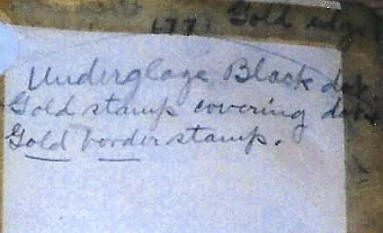 177. Gold edge
Underglaze Black
Gold stamp covering
Gold border stamp.